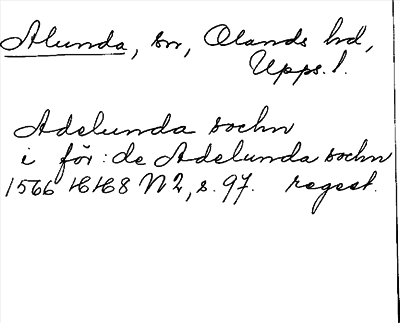 Alunda, sn, Olands hd,
Upps. l.
Adelunda sochn
i för: de Adelunda sochn
1566 HH8 N2, s. 97. regest.